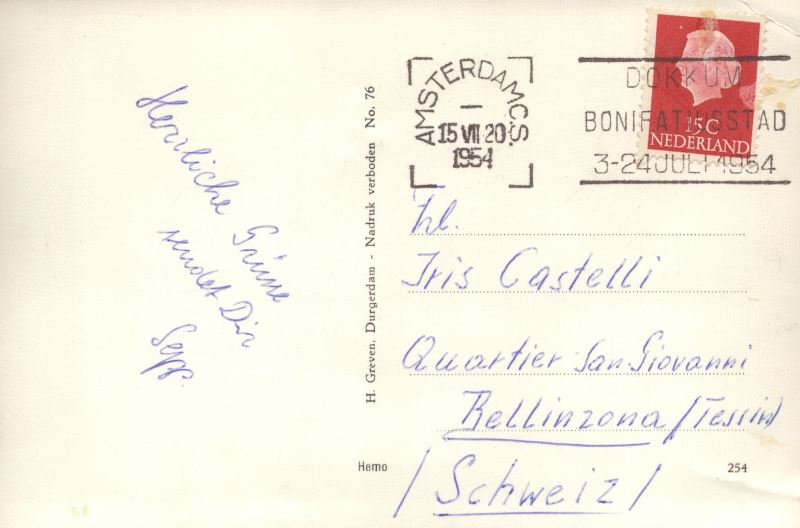 Herzliche Grüsse
sendet Dir
Sepp.
H. Greven, Durgerdam - Nadruk verboden No. 76
AMSTERDAM C.S.
15 VII 20
1954
DOKKUM
BONIFATIUSSTAD
3-24 JULI 1954
15C
NEDERLAND
Frl.
Iris Castelli
Quartier San Giovanni
Bellinzona / (Tessin)
/ Schweiz /
Hemo
254